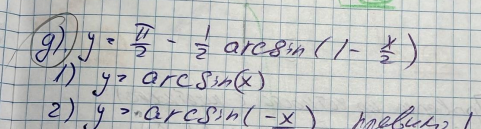 g) y = π/2 - 1/2 arcsin(1 - x/2)
1) y = arcsin(x)
2) y = arcsin(-x)